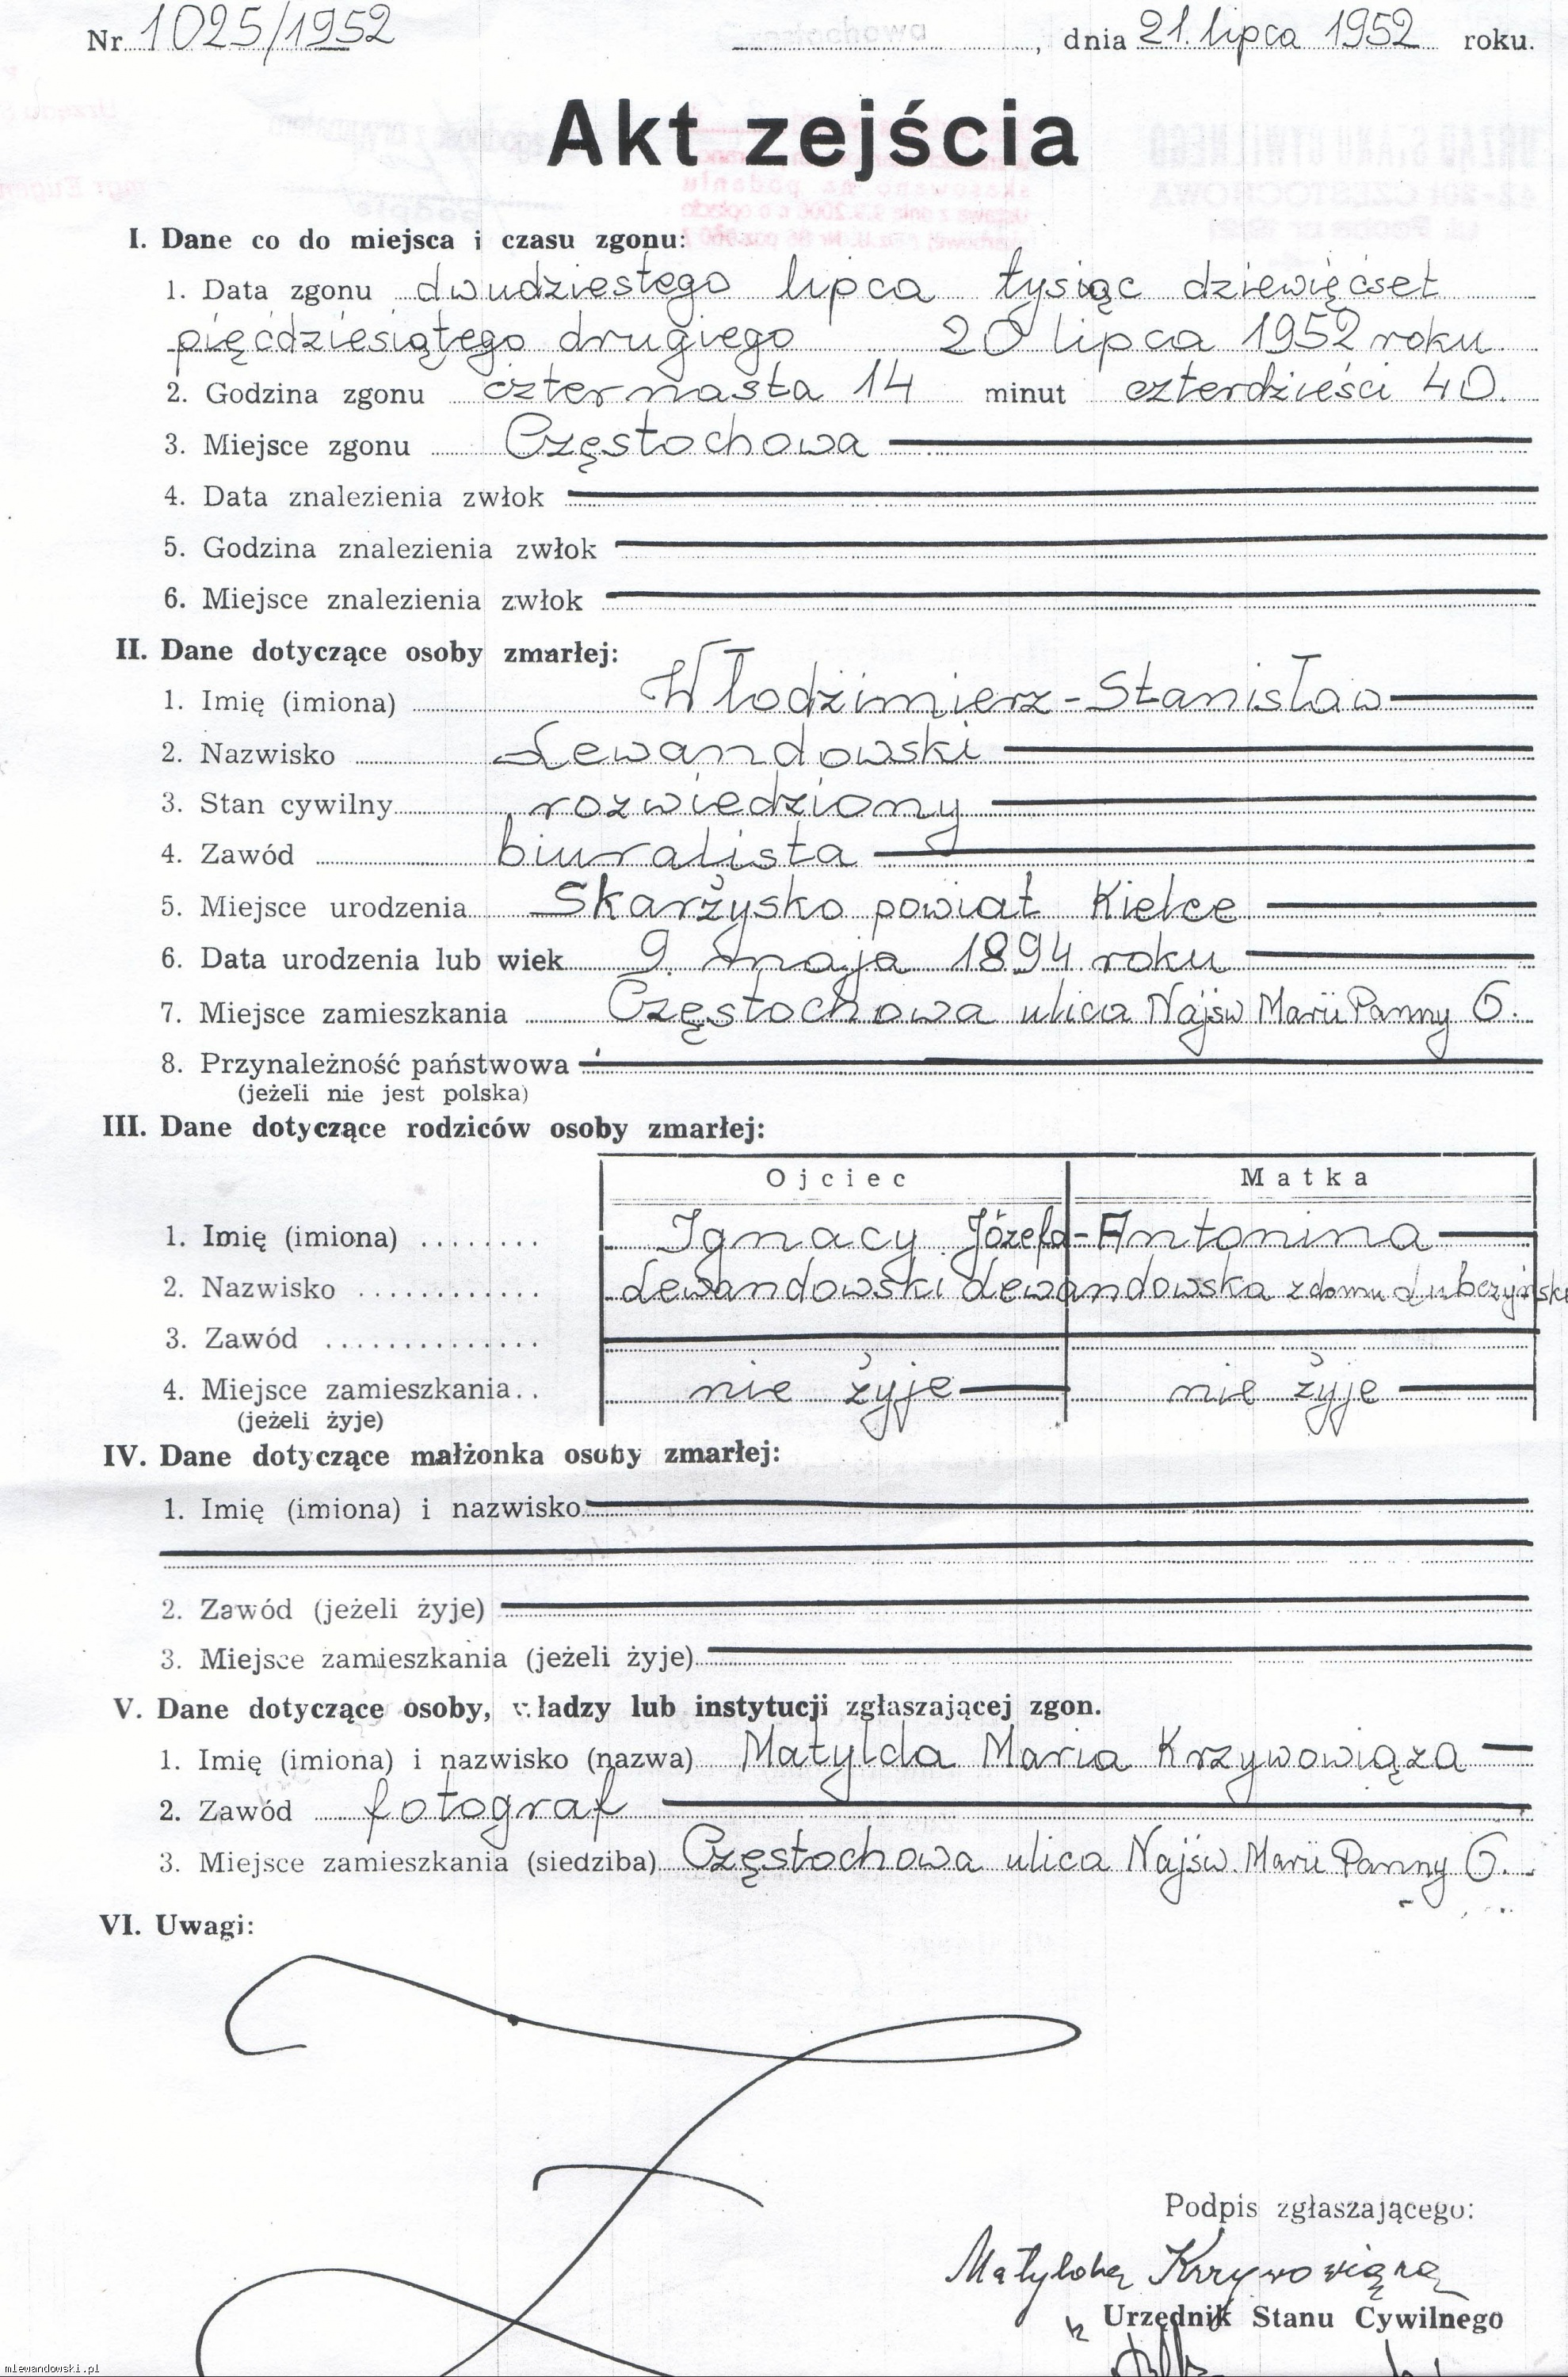 Nr 1025/1952 Częstochowa, dnia 21. lipca 1952 roku.
Akt zejścia
I. Dane co do miejsca i czasu zgonu:
1. Data zgonu dwudziestego lipca tysiąc dziewięćset
pięćdziesiątego drugiego 20 lipca 1952 roku.
2. Godzina zgonu czternasta 14 minut czterdzieści 40.
3. Miejsce zgonu Częstochowa
4. Data znalezienia zwłok
5. Godzina znalezienia zwłok
6. Miejsce znalezienia zwłok
II. Dane dotyczące osoby zmarłej:
1. Imię (imiona) Włodzimierz-Stanisław
2. Nazwisko Lewandowski
3. Stan cywilny rozwiedziony
4. Zawód biuralista
5. Miejsce urodzenia Skarżysko powiat Kielce
6. Data urodzenia lub wiek 9. maja 1894 roku
7. Miejsce zamieszkania Częstochowa ulica Najśw Marii Panny 6.
8. Przynależność państwowa
(jeżeli nie jest polska)
III. Dane dotyczące rodziców osoby zmarłej:
Ojciec Matka
1. Imię (imiona) ........ Ignacy Józefa-Antonina
2. Nazwisko ............ Lewandowski Lewandowska z domu Lubczyńska
3. Zawód ..............
4. Miejsce zamieszkania.. nie żyje nie żyje
(jeżeli żyje)
IV. Dane dotyczące małżonka osoby zmarłej:
1. Imię (imiona) i nazwisko
2. Zawód (jeżeli żyje)
3. Miejsce zamieszkania (jeżeli żyje)
V. Dane dotyczące osoby, władzy lub instytucji zgłaszającej zgon.
1. Imię (imiona) i nazwisko (nazwa) Matylda Maria Krzywowiąza
2. Zawód fotograf
3. Miejsce zamieszkania (siedziba) Częstochowa ulica Najśw. Marii Panny 6.
VI. Uwagi:
Podpis zgłaszającego:
Matylda Krzywowiąza
Urzędnik Stanu Cywilnego
mlewandowski.pl